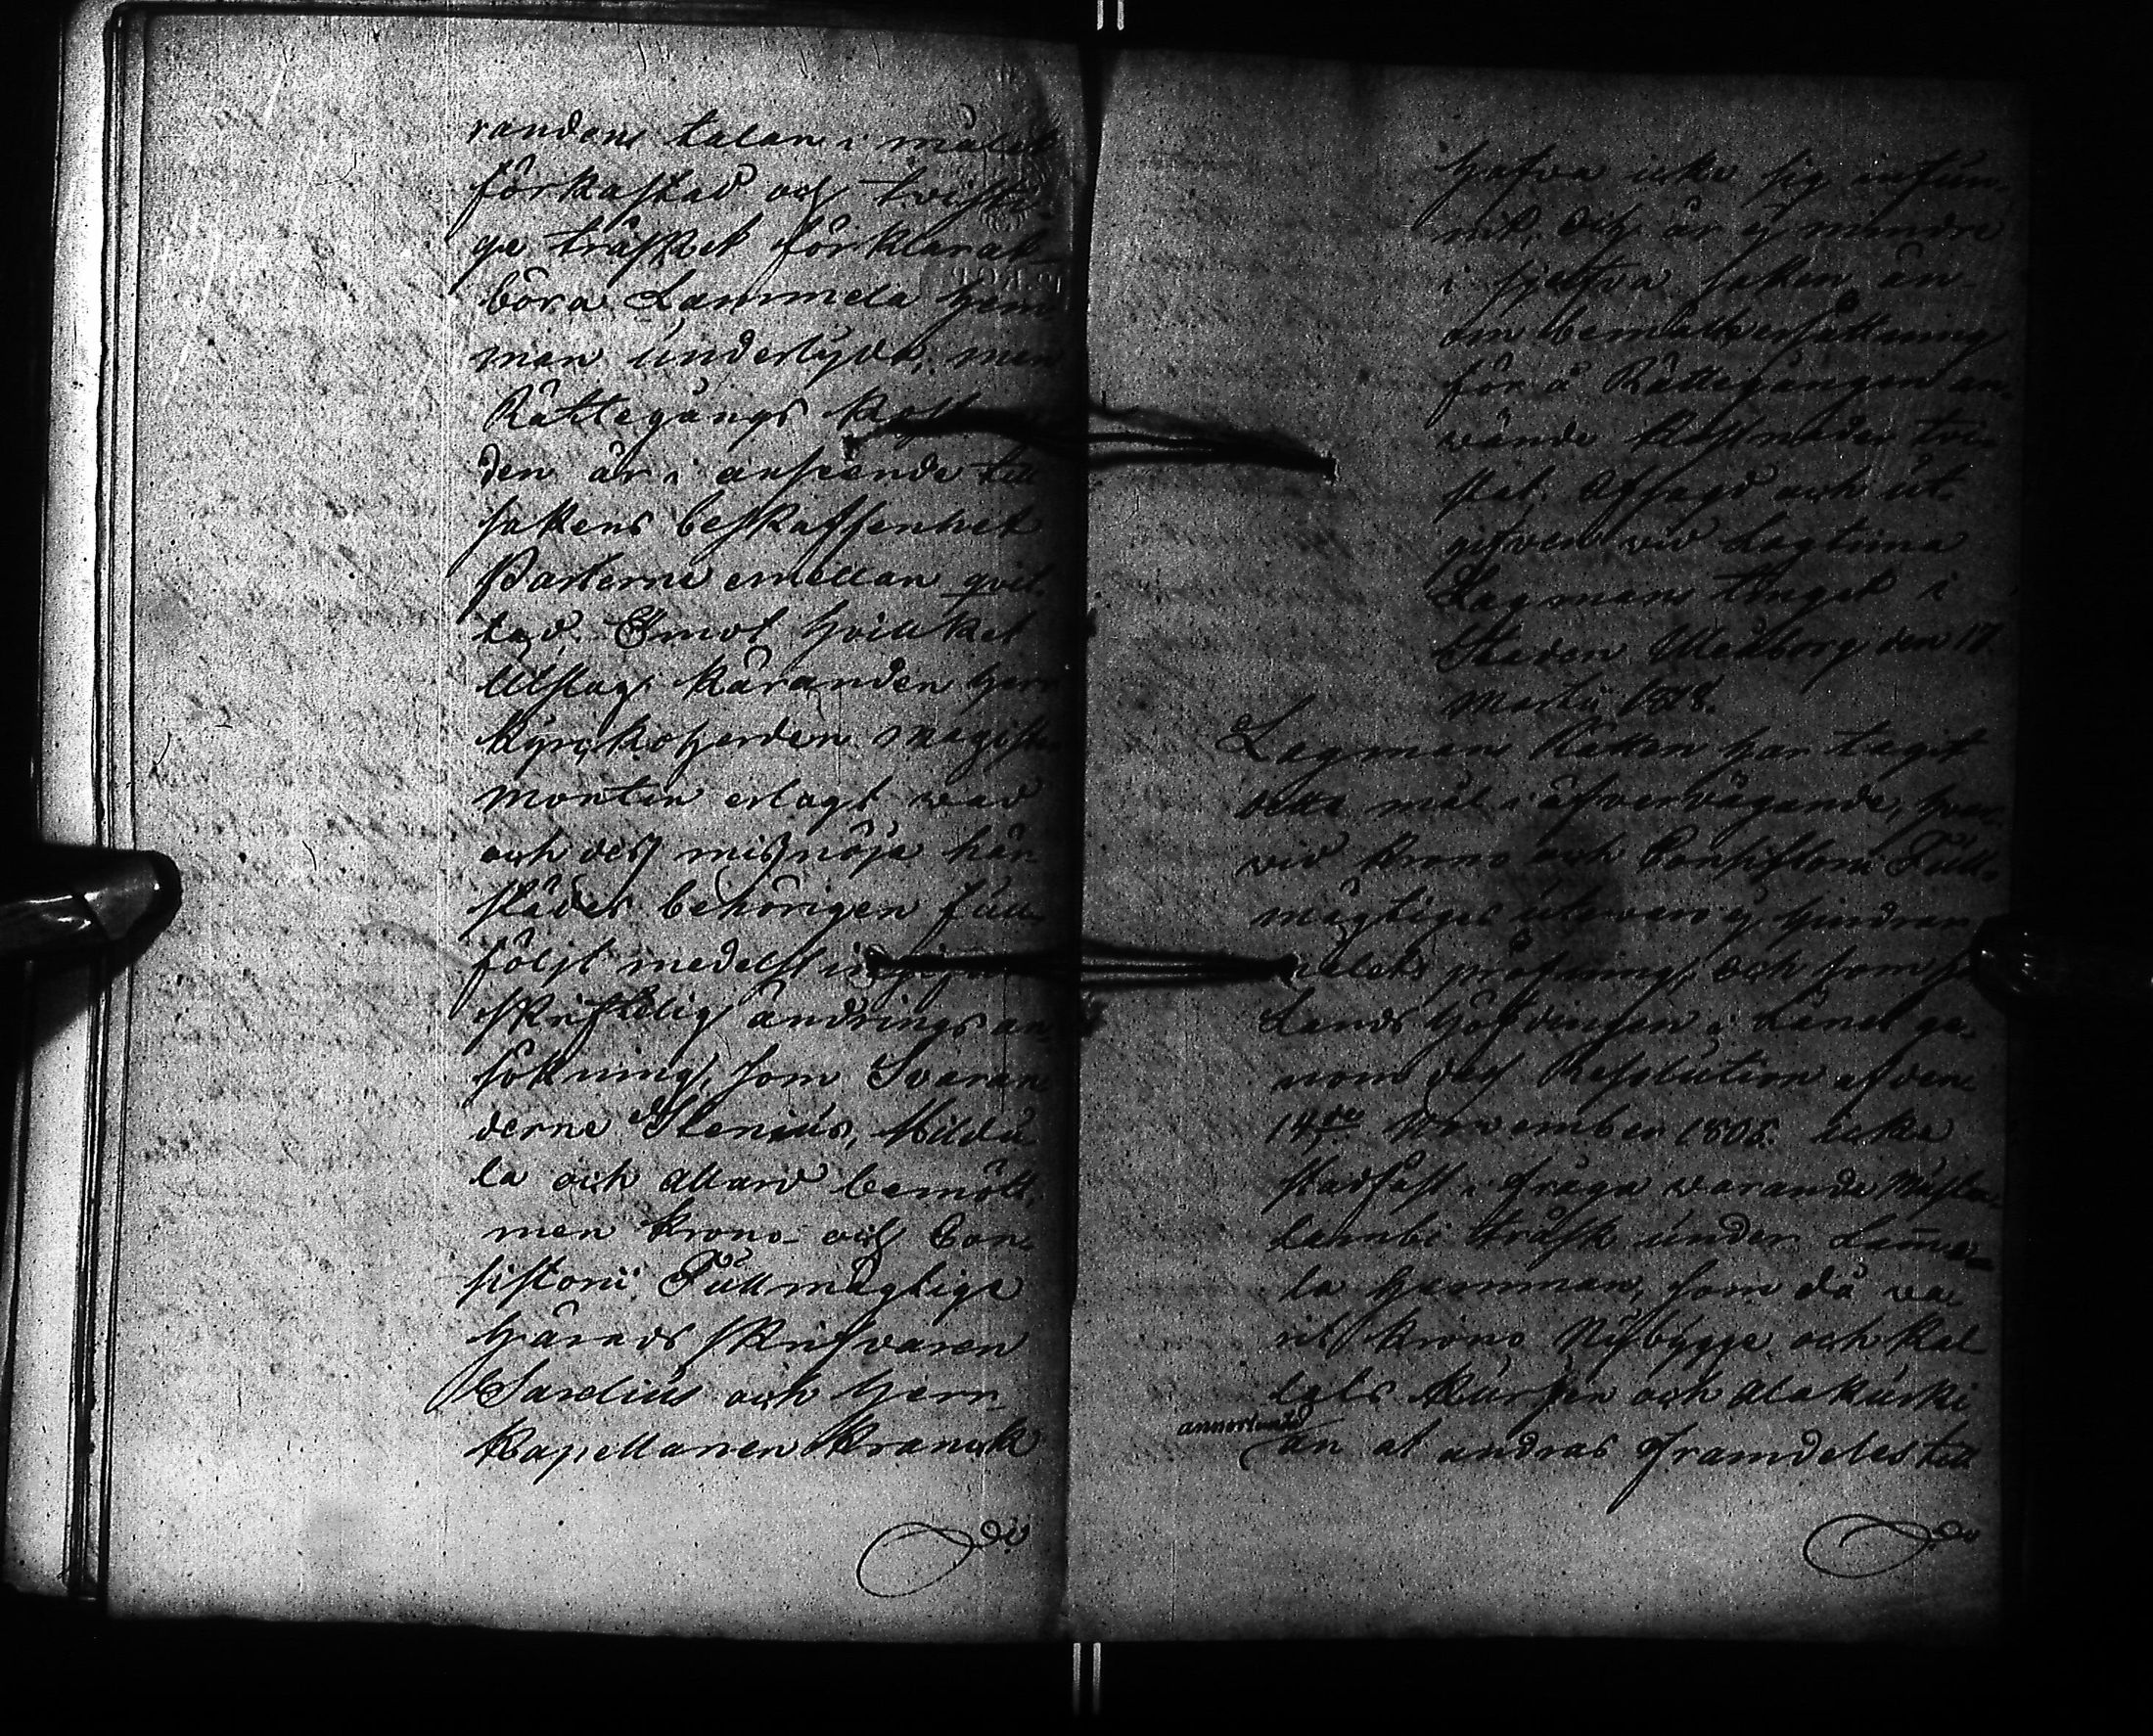 randens talan i målet
förkastad och tvisti-
ge träsket förklarat
böra Lammela Hem-
man underlyda; men
Rättegångs
den är i anseende till
sakens beskaffenhet
Parterne emellan qvit-
tad. Emot hvilket
Utslag Käranden Herr
Kyrckoherden Magister
Montin erlagt vad
och des misnöje här-
städes behörigen full-
följt medelst
skriftelig ändrings an-
sökning, som Svaran-
derne Stenius,
la och Allard bemött,
men Krono- och Con-
sistorii Fullmägtige
Härads skrifvaren
Sarelius och Herr
Kapellanen Kranck
hafva icke sig infun-
nit, och är ej mindre
i sjelfva saken än
om
för å Rättegången an-
vände kostnader tvi-
stat; Afsagd och ut-
gifven vid Lagtima
Lagmans Tinget i
Staden Uleåborg den 17
Martii 1818.
Lagmans Rätten har tagit
detta mål i öfvervägande, hvar-
vid Krono och Consistorii Full-
mägtiges utevaro ej hindrar
målets pröfning, och som
Lands Höfdingen i Länet ge-
nom des Resolution af den
14de November 1806. icke
stadfäst i fråga varande
Lambi träsk under Lamme-
la Hemman, som då va-
rit Krono Nybygge och kal-
lats Kurjen och Alakurki
annorlunda
än at andras framdeles till